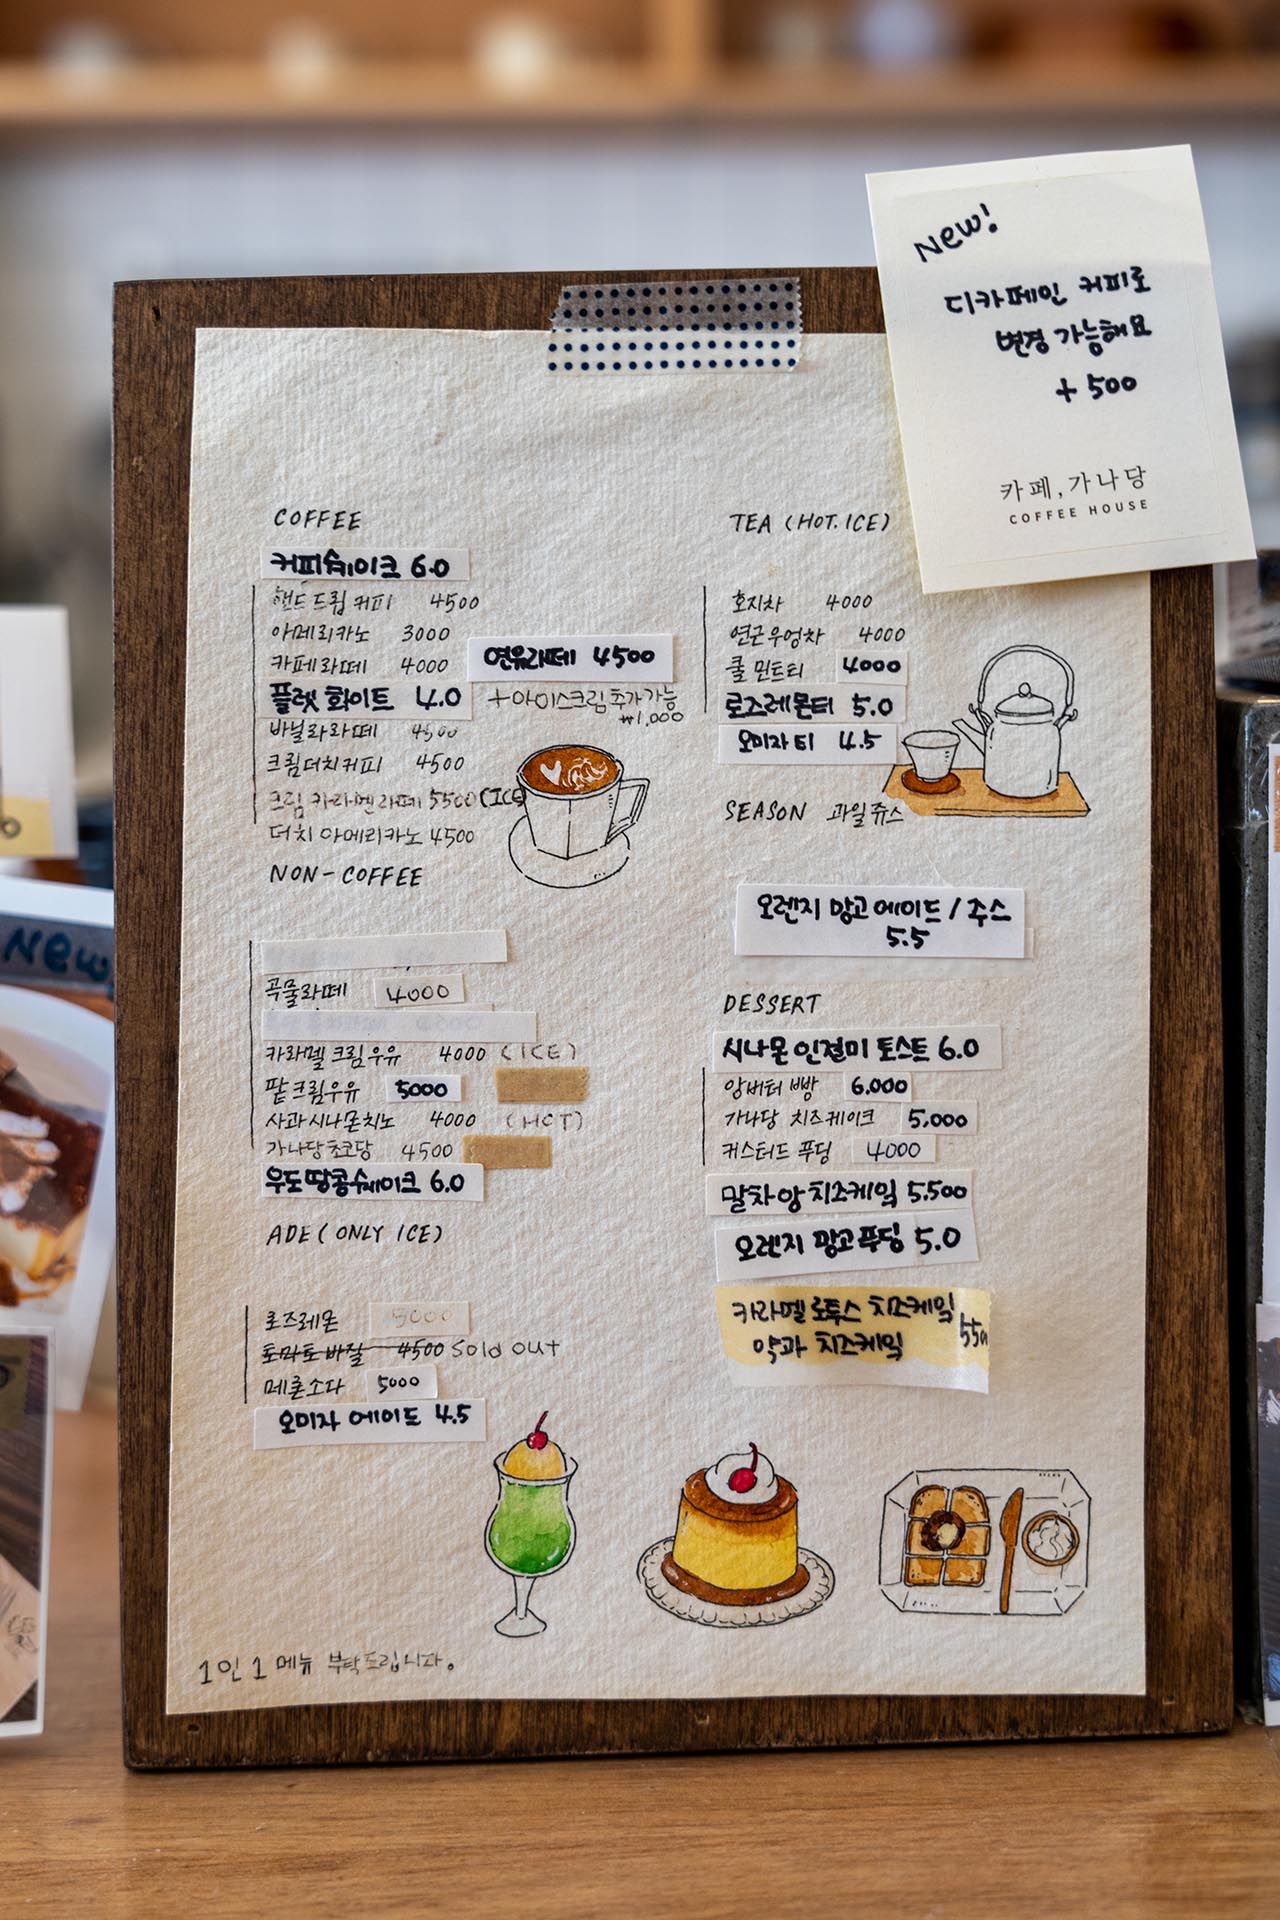 New!
디카페인 커피로
변경 가능해요
+ 500
카페, 가나당
COFFEE HOUSE
COFFEE
커피쉐이크 6.0
핸드드립 커피 4500
아메리카노 3000
카페라떼 4000
연유라떼 4500
플랫 화이트 4.0
+아이스크림 추가가능
₩1,000
바닐라라떼 4500
크림더치커피 4500
크림 카라멜라떼 5500 (ICE
더치 아메리카노 4500
NON-COFFEE
곡물라떼 4000
카라멜 크림우유 4000 (ICE)
팥크림우유 5000
사과시나몬치노 4000 (HOT)
가나당초코당 4500
우도땅콩쉐이크 6.0
ADE (ONLY ICE)
로즈레몬 5000
토마토바질 4500 Sold out
메론소다 5000
오미자 에이드 4.5
TEA (HOT.ICE)
호지차 4000
연근우엉차 4000
쿨민트티 4000
로즈레몬티 5.0
오미자티 4.5
SEASON 과일쥬스
오렌지 망고에이드 / 주스
5.5
DESSERT
시나몬 인절미 토스트 6.0
앙버터 빵 6.000
가나당 치즈케이크 5,000
커스터드 푸딩 4000
말차앙치즈케잌 5.500
오렌지 망고푸딩 5.0
카라멜 로투스 치즈케잌
약과 치즈케잌
1인 1 메뉴 부탁드립니다.
New